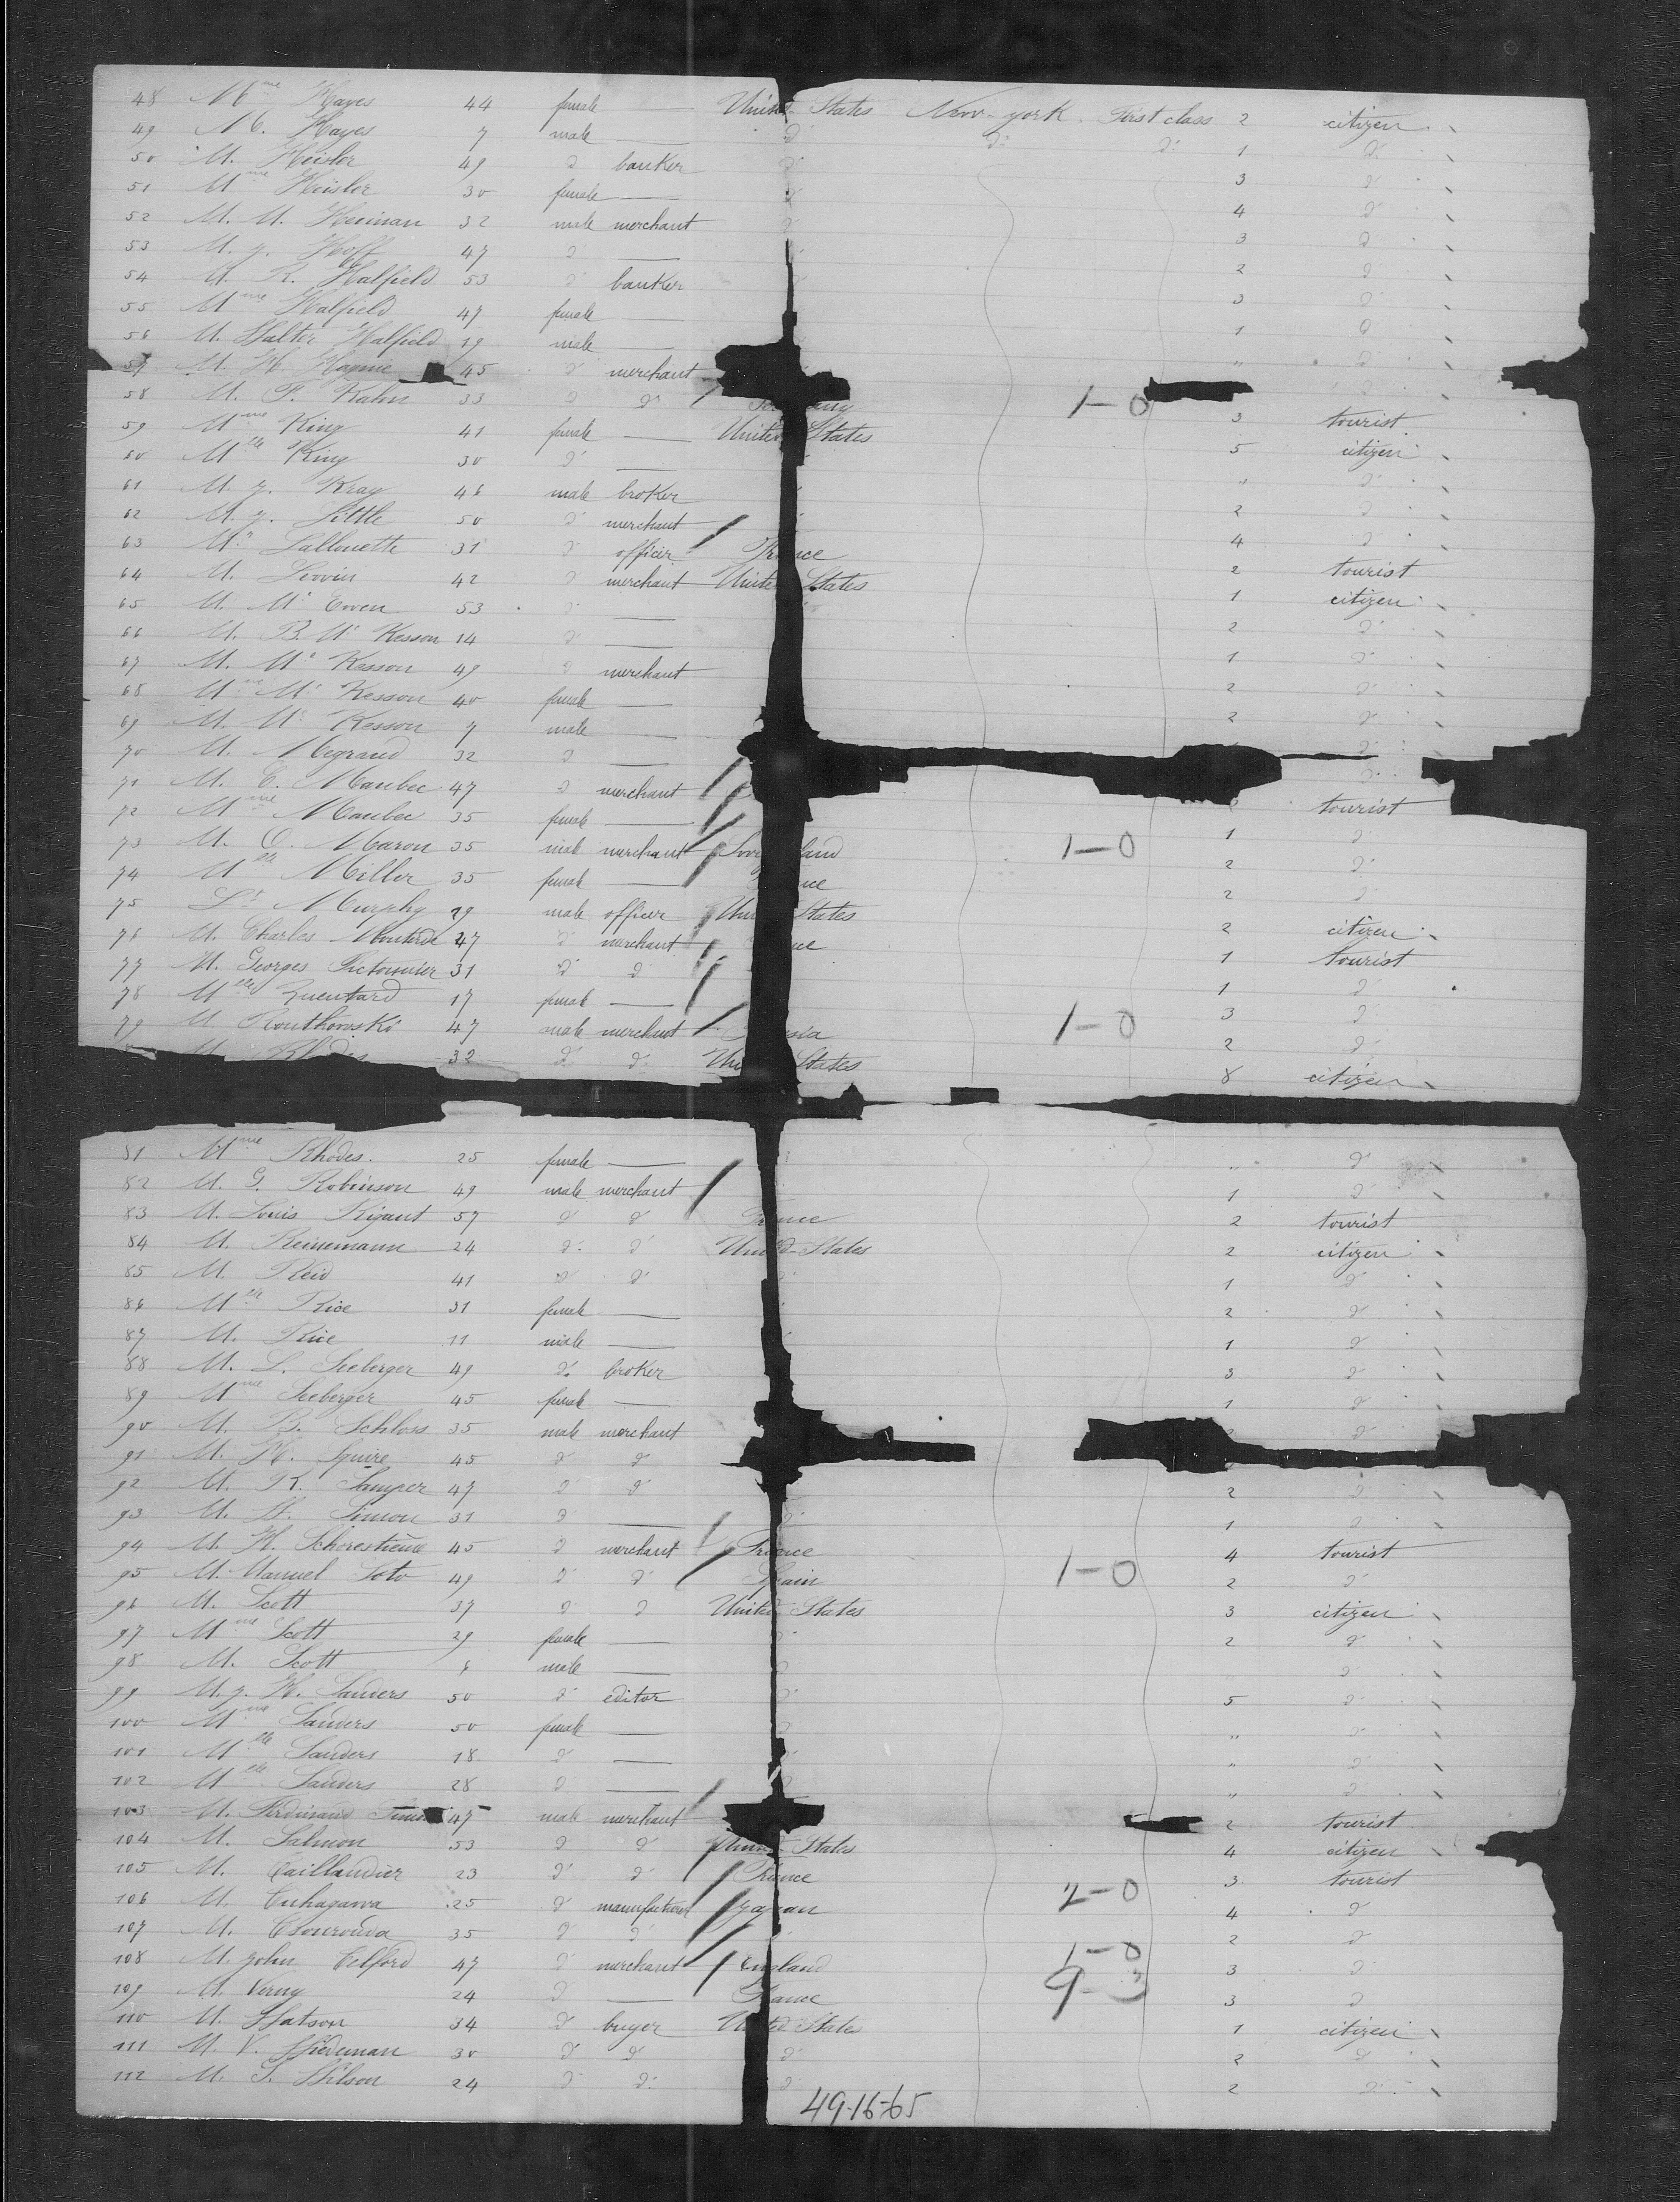 48 Mme Hayes 44 female — United States New-york First class 2 citizen
49 M. Hayes 7 male — d° d° d° 1 d°
50 M. Heisler 49 d° banker d° 3 d°
51 Mme Heisler 30 female — d° 4 d°
52 M. M. Herman 32 male merchant d° 3 d°
53 M. J. Hoff 47 d° — 2 d°
54 M. R. Halfield 53 d° banker 3 d°
55 Mme Halfield 47 female — 1 d°
56 M. Walter Halfield 19 male — " d°
57 M. H. 45 d° merchant d°
58 M. F. Kahn 33 d° d° 1-0 3 tourist
59 Mme King 41 female — United States 5 citizen
60 Mlle King 30 d° — " d°
61 M. J. Kray 46 male broker 2 d°
62 M. J. Little 50 d° merchant 4 d°
63 Mr Lallouette 31 d° officer France 2 tourist
64 M. 42 d° merchant United States 1 citizen
65 M. Mc Ewen 53 d° — 2 d°
66 M. B. Mc Kesson 14 d° — 1 d°
67 M. Mc Kesson 49 d° merchant 2 d°
68 Mme Mc Kesson 40 female — 2 d°
69 M. Mc Kesson 7 male — d°
70 M. Megraud 32 d° — d°
71 M. E. Maubec 47 d° merchant tourist
72 Mme Maubec 35 female — 1 d°
73 M. O. Maron 35 male merchant 1-0 2 d°
74 Mlle Miller 35 female — 2 d°
75 Lt Murphy 29 male officer United States 2 citizen
76 M. Charles 47 d° merchant 1 tourist
77 M. Georges 31 d° d° 1 d°
78 Mlle 17 female — 3 d°
79 M. 47 male merchant 1-0 2 d°
M. Rhodes 32 d° d° United States 8 citizen
81 Mme Rhodes. 25 female — " d°
82 M. G. Robinson 49 male merchant 1 d°
83 M. Louis 57 d° d° France 2 tourist
84 M. Reinemann 24 d° d° United States 2 citizen
85 M. Reid 41 d° d° d° 1 d°
86 Mlle Rice 31 female — 2 d°
87 M. Rice 11 male — 1 d°
88 M. L. Seeberger 49 d° broker 3 d°
89 Mme Seeberger 45 female — 1 d°
90 M. B. Schloss 35 male merchant d°
91 M. H. Squire 45 d° d°
92 M. R. Samper 47 d° d° 2 d°
93 M. Simon 31 d° — d° 1 d°
94 M. H. 45 d° merchant France 4 tourist
95 M. Manuel Soto 49 d° d° Spain 1-0 2 d°
96 M. Scott 37 d° d° United States 3 citizen
97 Mme Scott 29 female — d° 2 d°
98 M. Scott 6 male — d° d°
99 M. J. H. Sanders 50 d° editor d° 5 d°
100 Mme Sanders 50 female — d° " d°
101 Mlle Sanders 18 d° — " d°
102 Mlle Sanders 28 d° — d° " d°
103 M. Ferdinand 47 male merchant 2 tourist
104 M. Salmon 53 d° d° United States 4 citizen
105 M. Taillandier 23 d° d° France 3 tourist
106 M. 25 d° manufacturer Japan 2-0 4 d°
107 M. 35 d° d° 2 d°
108 M. John Telford 47 d° merchant England 1-0 3 d°
109 M. Verny 24 d° — France 9-3 3 d°
110 M. Watson 34 d° buyer United States 1 citizen
111 M. V. Wiedeman 30 d° d° d° 2 d°
112 M. S. Wilson 24 d° d° d° 2 d°
49-16-65